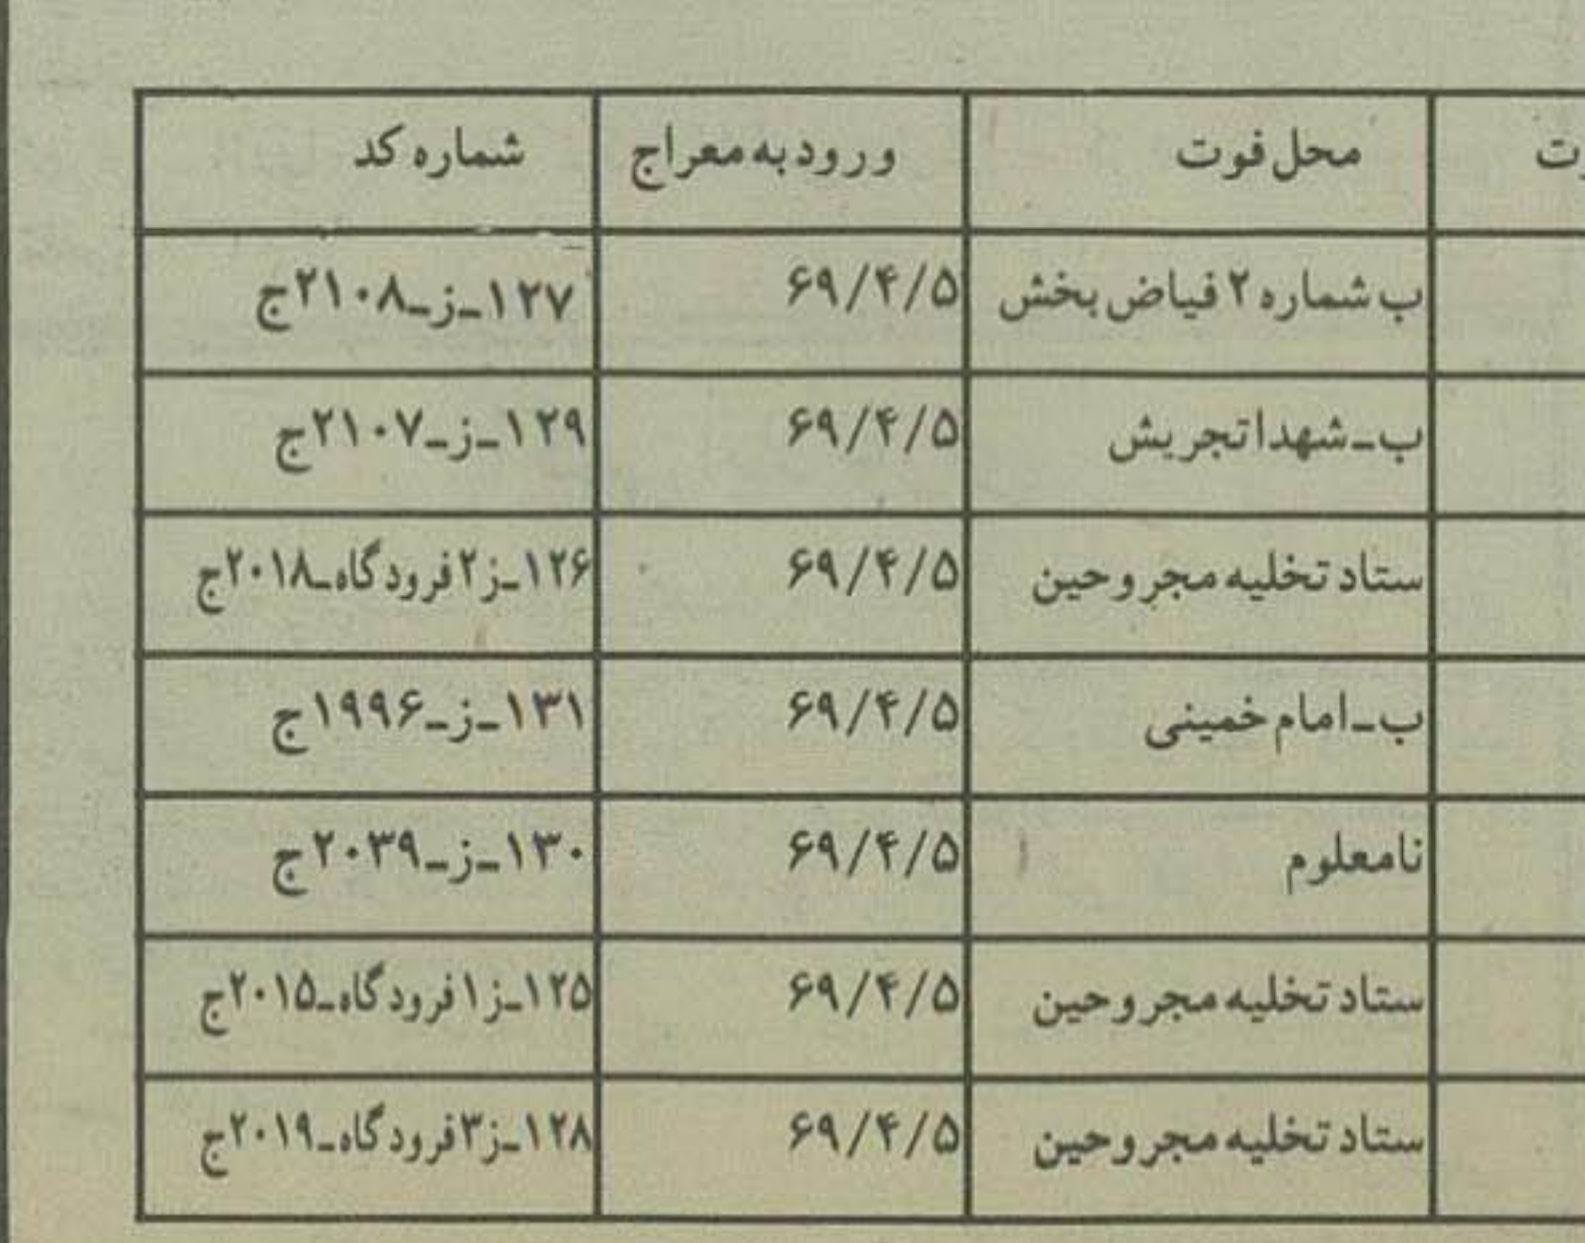 محل فوت ورود به معراج شماره کد
ب شماره ۲ فیاض بخش ۶۹/۴/۵ ۱۲۷ـزـ۲۱۰۸ج
ب ـ شهدا تجریش ۶۹/۴/۵ ۱۲۹ـزـ۲۱۰۷ج
ستاد تخلیه مجروحین ۶۹/۴/۵ ۱۲۶ـز۲ فرودگاه ـ۲۰۱۸ج
ب ـ امام خمینی ۶۹/۴/۵ ۱۳۱ـزـ۱۹۹۶ج
نامعلوم ۶۹/۴/۵ ۱۳۰ـزـ۲۰۳۹ج
ستاد تخلیه مجروحین ۶۹/۴/۵ ۱۲۵ـز۱ فرودگاه ـ۲۰۱۵ج
ستاد تخلیه مجروحین ۶۹/۴/۵ ۱۲۸ـز۳ فرودگاه ـ۲۰۱۹ج